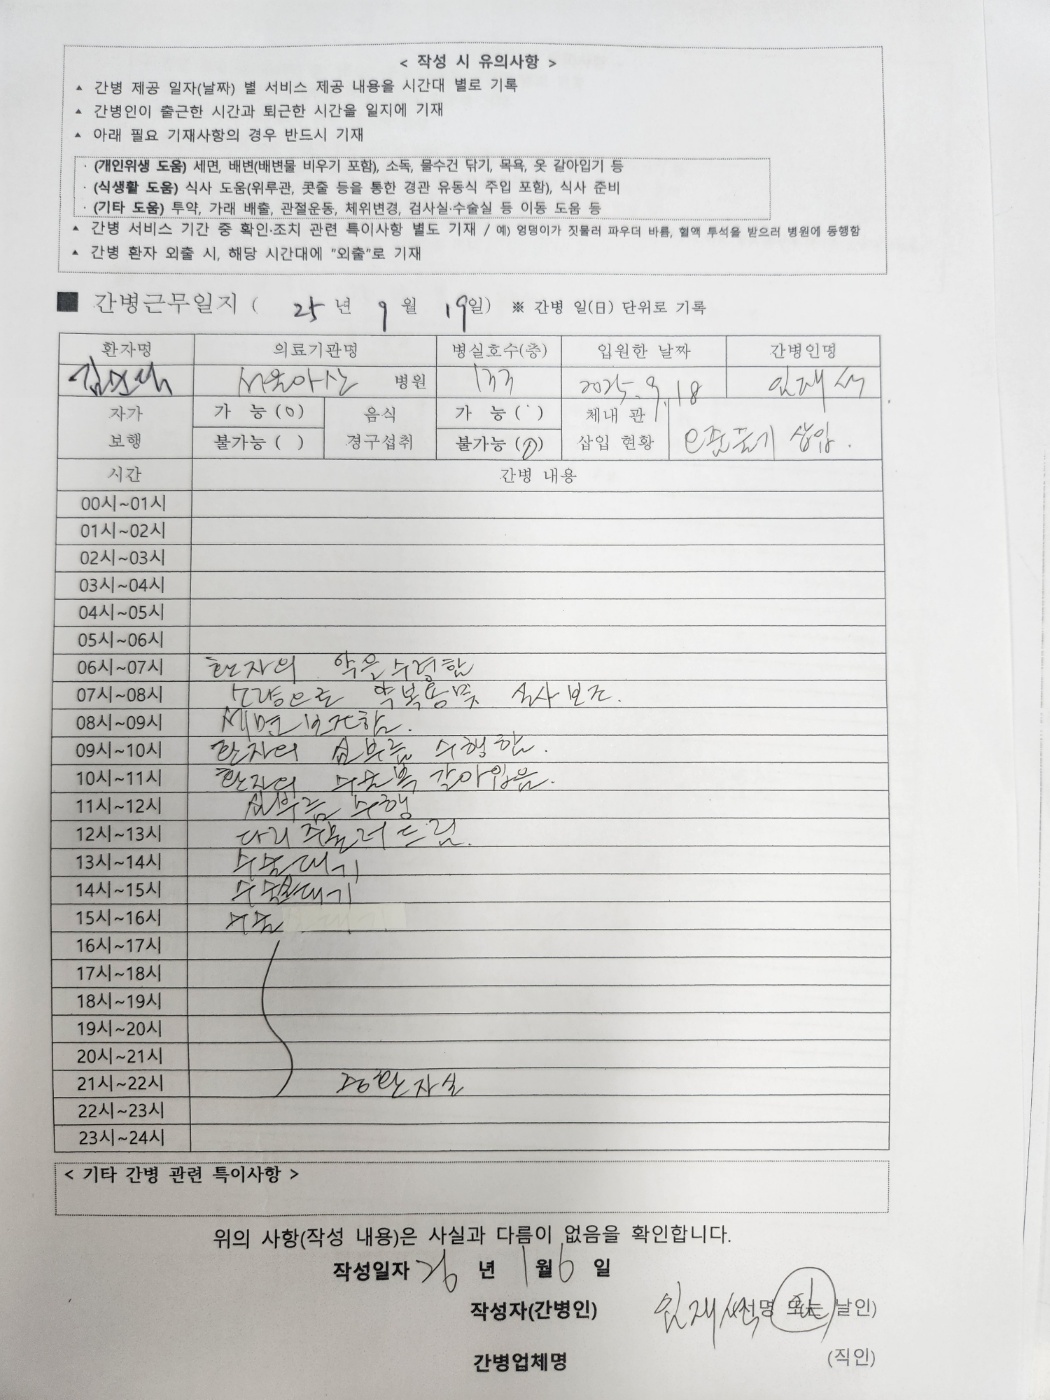 < 작성 시 유의사항 >
▲ 간병 제공 일자(날짜) 별 서비스 제공 내용을 시간대 별로 기록
▲ 간병인이 출근한 시간과 퇴근한 시간을 일지에 기재
▲ 아래 필요 기재사항의 경우 반드시 기재
· (개인위생 도움) 세면, 배변(배변물 비우기 포함), 소독, 물수건 닦기, 목욕, 옷 갈아입기 등
· (식생활 도움) 식사 도움(위루관, 콧줄 등을 통한 경관 유동식 주입 포함), 식사 준비
· (기타 도움) 투약, 가래 배출, 관절운동, 체위변경, 검사실·수술실 등 이동 도움 등
▲ 간병 서비스 기간 중 확인·조치 관련 특이사항 별도 기재 / 예) 엉덩이가 짓물러 파우더 바름, 혈액 투석을 받으러 병원에 동행함
▲ 간병 환자 외출 시, 해당 시간대에 "외출"로 기재
■ 간병근무일지 ( 25 년 9 월 19일) ※ 간병 일(日) 단위로 기록
환자명 의료기관명 병실호수(층) 입원한 날짜 간병인명
서울아산 병원 133 2025.9.18 임재석
자가 보행 가 능 (o) 불가능 ( ) 음식 경구섭취 가 능 ( ) 불가능 (o) 체내 관 삽입 현황 삽입.
시간 간병 내용
00시~01시
01시~02시
02시~03시
03시~04시
04시~05시
05시~06시
06시~07시 환자의 약을 수령함
07시~08시 약복용및 식사 보조.
08시~09시 세면 보조함.
09시~10시 환자의 심부름 수행함.
10시~11시 환자의 수술복 갈아입음.
11시~12시 심부름 수행
12시~13시 다리 주물러 드림.
13시~14시 수술대기
14시~15시 수술대기
15시~16시 수술
16시~17시
17시~18시
18시~19시
19시~20시
20시~21시
21시~22시 중환자실
22시~23시
23시~24시
< 기타 간병 관련 특이사항 >
위의 사항(작성 내용)은 사실과 다름이 없음을 확인합니다.
작성일자 26 년 1월 6 일
작성자(간병인) 임재석 (서명 또는 날인)
간병업체명 (직인)